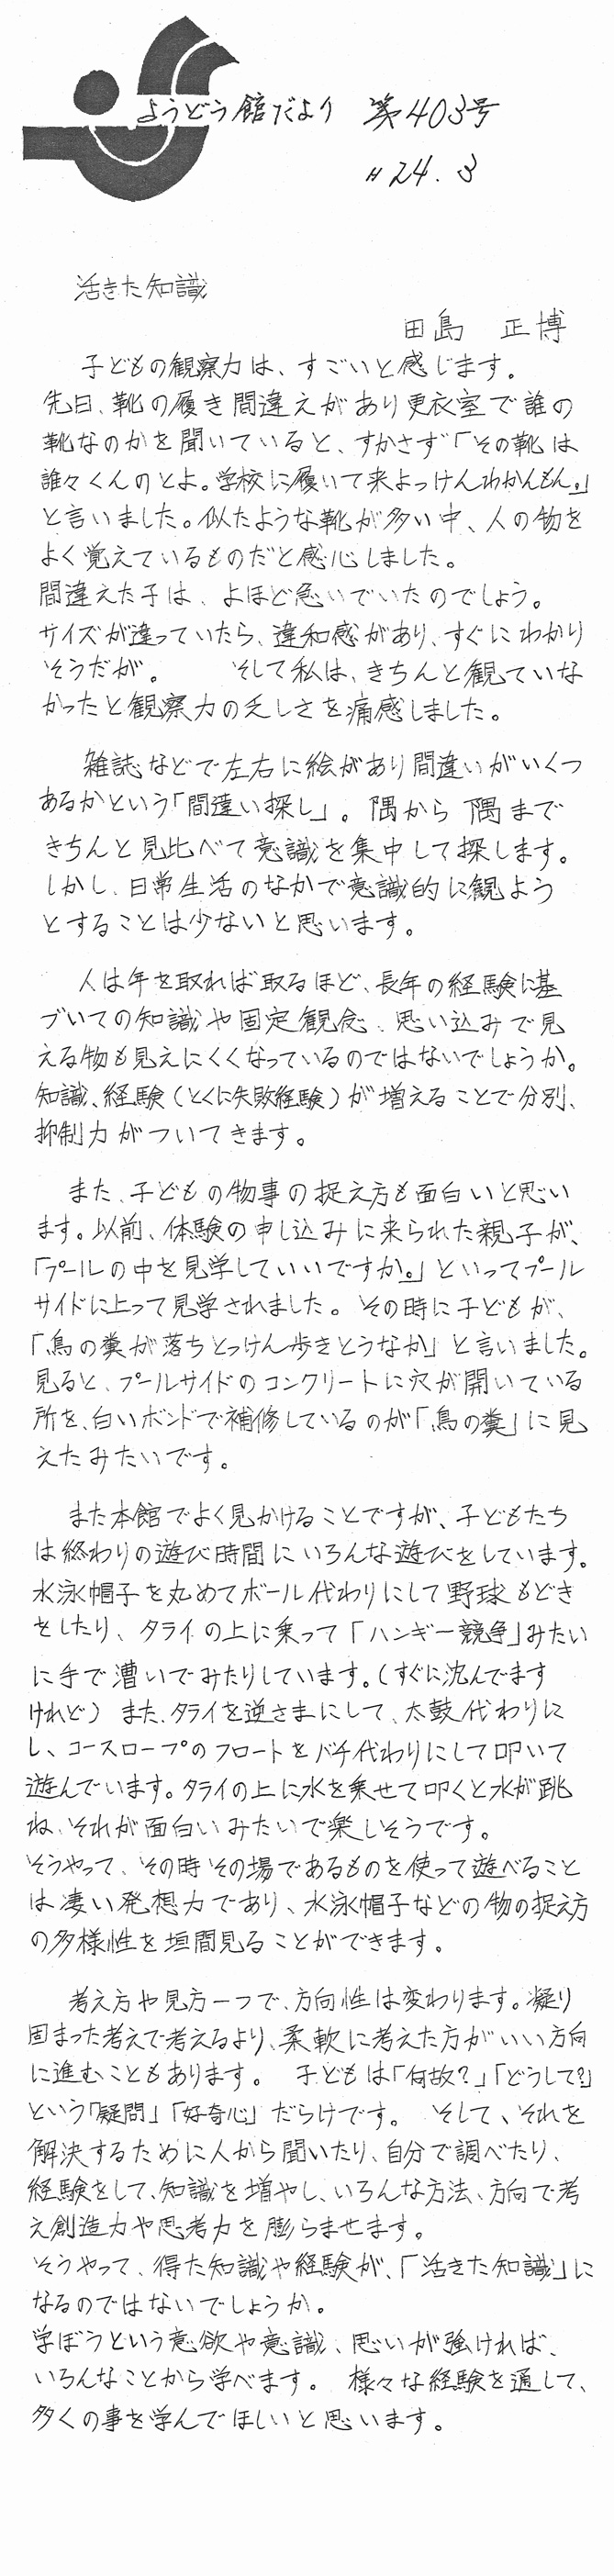 ようどう館だより 第403号
H24.3
活きた知識
田島 正博
子どもの観察力は、すごいと感じます。
先日、靴の履き間違えがあり更衣室で誰の
靴なのかを聞いていると、すかさず「その靴は
誰々くんのとよ。学校に履いて来よっけんわかんもん。」
と言いました。似たような靴が多い中、人の物を
よく覚えているものだと感心しました。
間違えた子は、よほど急いでいたのでしょう。
サイズが違っていたら、違和感があり、すぐにわかり
そうだが。 そして私は、きちんと観ていな
かったと観察力の乏しさを痛感しました。
雑誌などで左右に絵があり間違いがいくつ
あるかという「間違い探し」。隅から隅まで
きちんと見比べて意識を集中して探します。
しかし、日常生活のなかで意識的に観よう
とすることは少ないと思います。
人は年を取れば取るほど、長年の経験に基
づいての知識や固定観念、思い込みで見
える物も見えにくくなっているのではないでしょうか。
知識、経験(とくに失敗経験)が増えることで分別、
抑制力がついてきます。
また、子どもの物事の捉え方も面白いと思い
ます。以前、体験の申し込みに来られた親子が、
「プールの中を見学していいですか。」といってプール
サイドに上って見学されました。その時に子どもが、
「鳥の糞が落ちとっけん歩きとうなか」と言いました。
見ると、プールサイドのコンクリートに穴が開いている
所を、白いボンドで補修しているのが「鳥の糞」に見
えたみたいです。
また本館でよく見かけることですが、子どもたち
は終わりの遊び時間にいろんな遊びをしています。
水泳帽子を丸めてボール代わりにして野球もどき
をしたり、タライの上に乗って「ハンギー競争」みたい
に手で漕いでみたりしています。(すぐに沈んでます
けれど) また、タライを逆さまにして、太鼓代わりに
し、コースロープのフロートをバチ代わりにして叩いて
遊んでいます。タライの上に水を乗せて叩くと水が跳
ね、それが面白いみたいで楽しそうです。
そうやって、その時その場であるものを使って遊べること
は凄い発想力であり、水泳帽子などの物の捉え方
の多様性を垣間見ることができます。
考え方や見方一つで、方向性は変わります。凝り
固まった考えで考えるより、柔軟に考えた方がいい方向
に進むこともあります。 子どもは「何故?」「どうして?」
という「疑問」「好奇心」だらけです。 そして、それを
解決するために人から聞いたり、自分で調べたり、
経験をして、知識を増やし、いろんな方法、方向で考
え創造力や思考力を膨らませます。
そうやって、得た知識や経験が、「活きた知識」に
なるのではないでしょうか。
学ぼうという意欲や意識、思いが強ければ、
いろんなことから学べます。 様々な経験を通して、
多くの事を学んでほしいと思います。